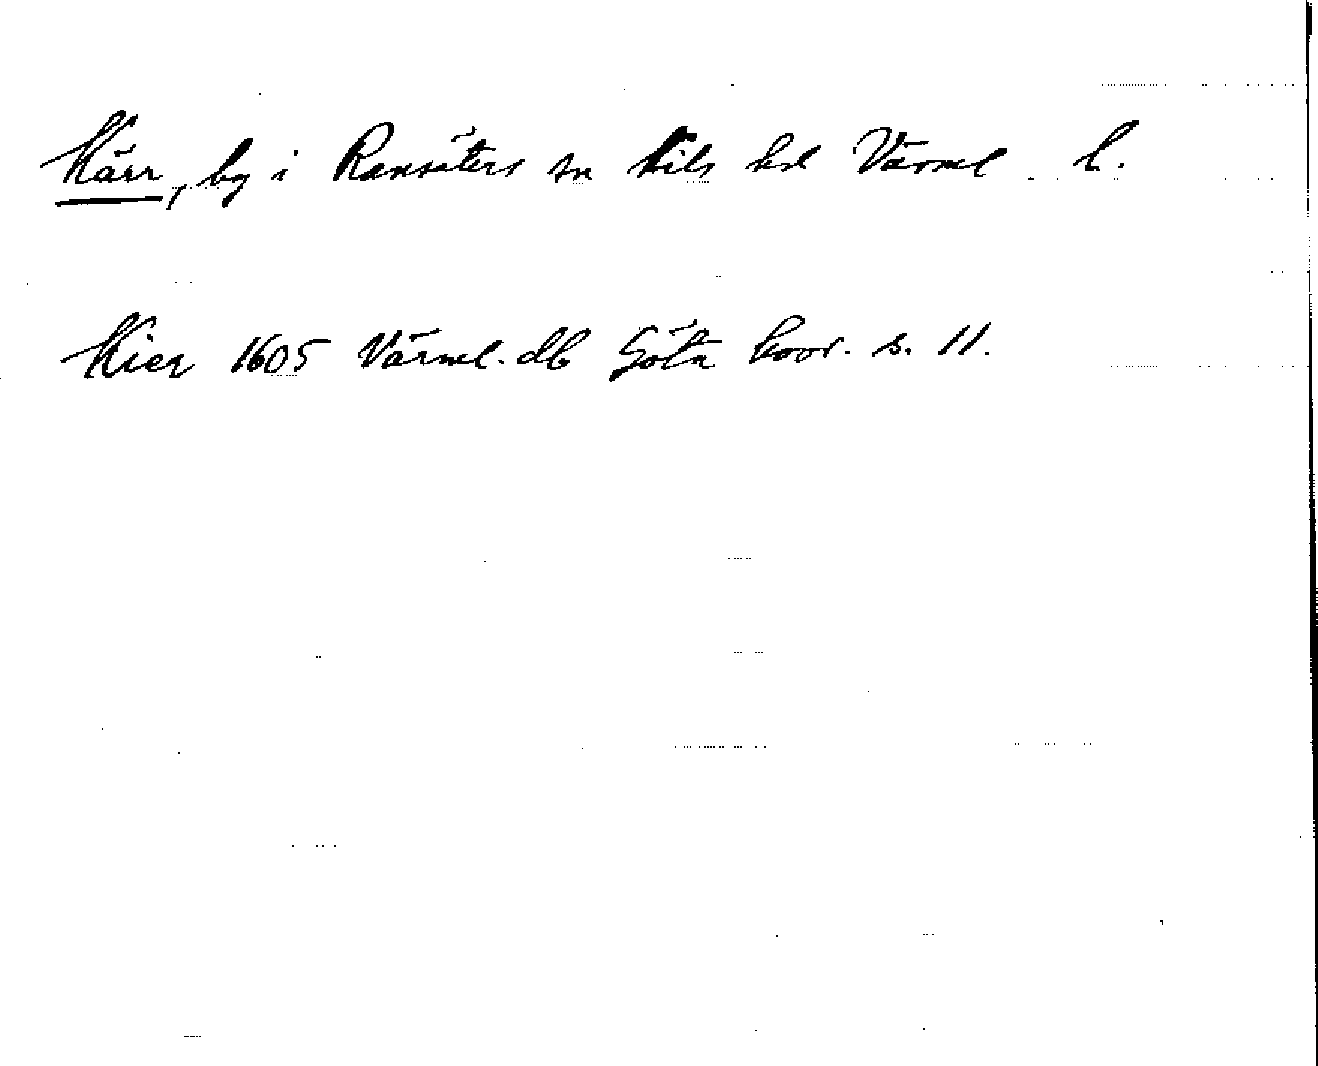 Kärr, by i Ransäters sn Kils hd Värml. l.
Kier 1605 Värml. db Göta hovr. s. 11.